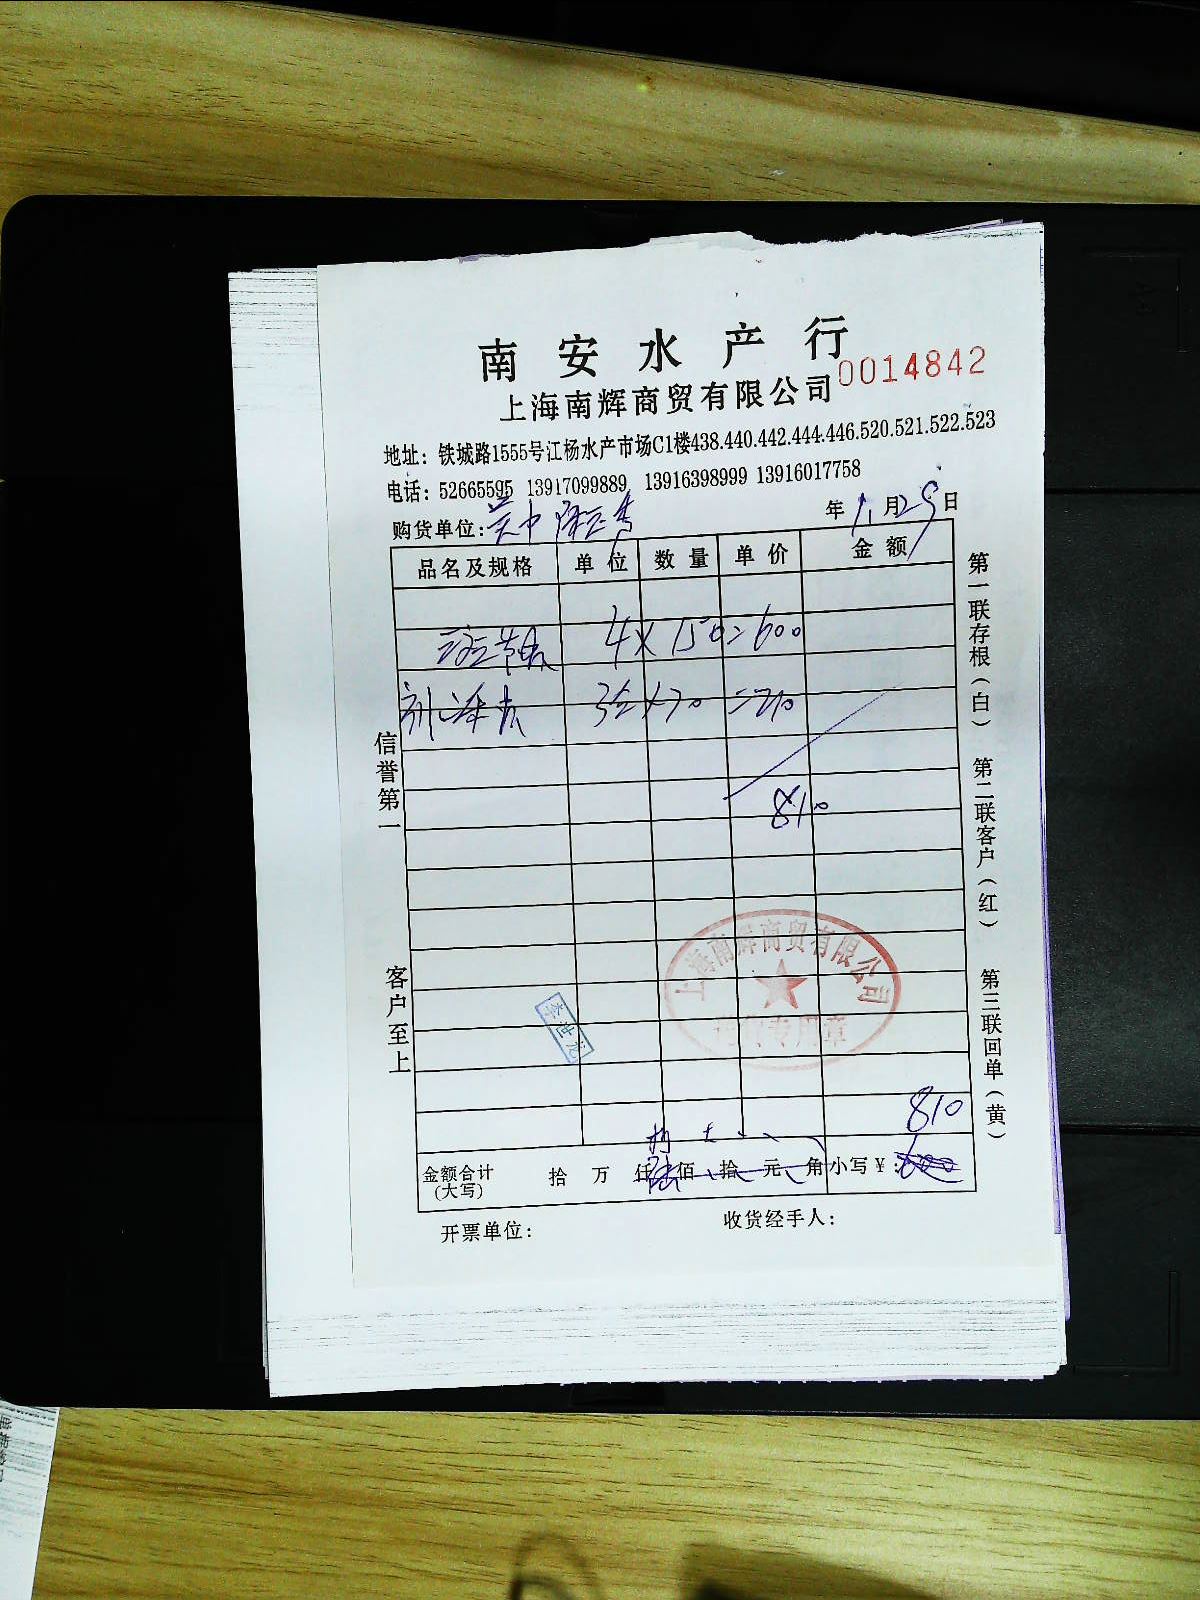 南安水产行
上海南辉商贸有限公司 0014842
地址：铁城路1555号江杨水产市场C1楼438.440.442.444.446.520.521.522.523
电话：52665595 13917099889 13916398999 13916017758
购货单位： 年 月29日
品名及规格 单位 数量 单价 金额
4×150=600
×70=210
810
信誉第一
客户至上
第一联存根（白） 第二联客户（红） 第三联回单（黄）
上海南辉商贸有限公司
专用章
李世龙
810
金额合计（大写） 拾 万 仟 佰 拾 元 角 小写￥：
开票单位： 收货经手人：